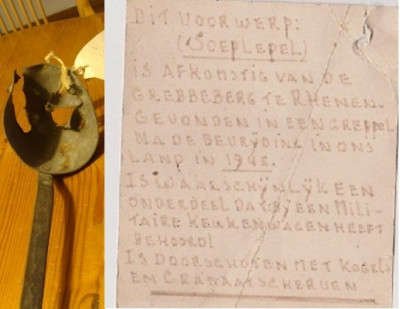 DIT VOORWERP:
(SOEPLEPEL)
IS AFKOMSTIG VAN DE
GREBBEBERG TE RHENEN.
GEVONDEN IN EEN GREPPEL
NA DE BEVRIJDING IN ONS
LAND IN 1945.
IS WAARSCHIJNLIJK EEN
ONDERDEEL DAT BIJ EEN MILI-
TAIRE KEUKENWAGEN HEEFT
BEHOORD!
IS DOORSCHOTEN MET KOGELS
EM GRANAATSCHERVEN